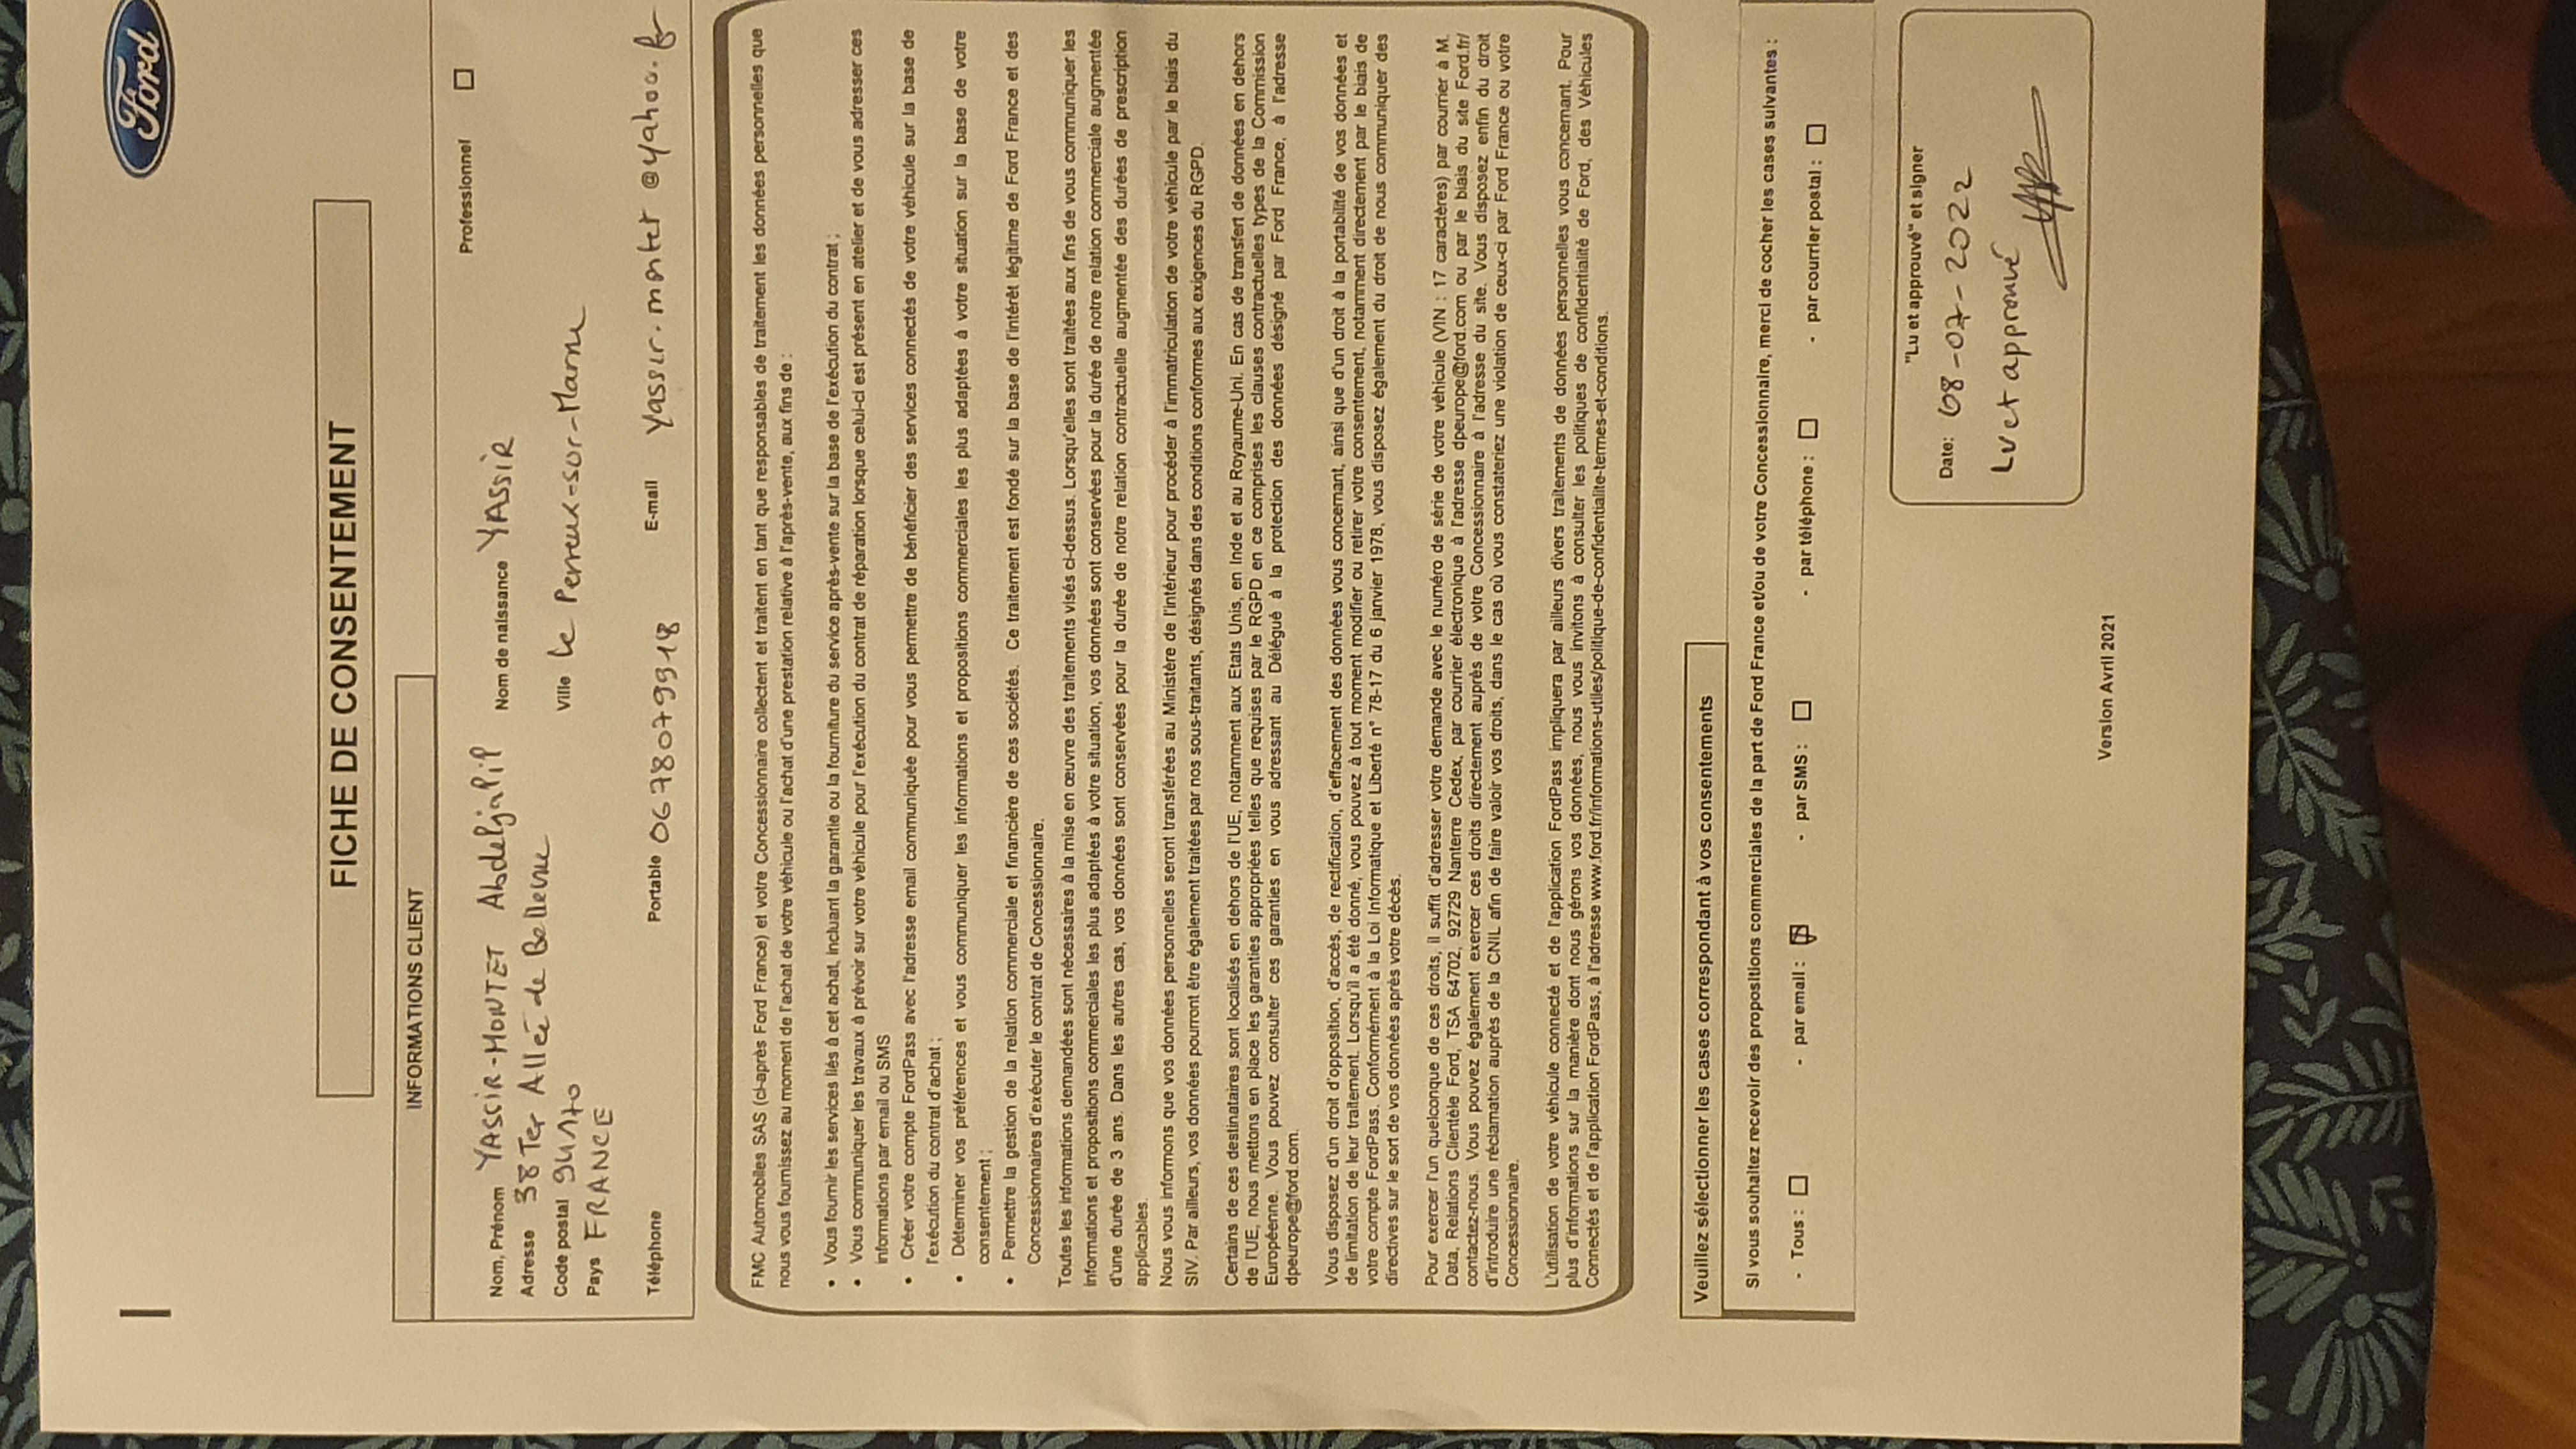 Ford
FICHE DE CONSENTEMENT
INFORMATIONS CLIENT
Professionnel
Nom, Prénom YASSIR-MONTET Abdeljalil Nom de naissance YASSIR
Adresse 38 Ter Allée de Bellevue
Code postal 94170 Ville Le Perreux-sur-Marne
Pays FRANCE
Téléphone Portable 0678079918 E-mail yassir.montet@yahoo.fr
FMC Automobiles SAS (ci-après Ford France) et votre Concessionnaire collectent et traitent en tant que responsables de traitement les données personnelles que
nous vous fournissez au moment de l'achat de votre véhicule ou l'achat d'une prestation relative à l'après-vente, aux fins de :
• Vous fournir les services liés à cet achat, incluant la garantie ou la fourniture du service après-vente sur la base de l'exécution du contrat ;
• Vous communiquer les travaux à prévoir sur votre véhicule pour l'exécution du contrat de réparation lorsque celui-ci est présent en atelier et de vous adresser ces
informations par email ou SMS
• Créer votre compte FordPass avec l'adresse email communiquée pour vous permettre de bénéficier des services connectés de votre véhicule sur la base de
l'exécution du contrat d'achat ;
• Déterminer vos préférences et vous communiquer les informations et propositions commerciales les plus adaptées à votre situation sur la base de votre
consentement ;
• Permettre la gestion de la relation commerciale et financière de ces sociétés. Ce traitement est fondé sur la base de l'intérêt légitime de Ford France et des
Concessionnaires d'exécuter le contrat de Concessionnaire.
Toutes les informations demandées sont nécessaires à la mise en œuvre des traitements visés ci-dessus. Lorsqu'elles sont traitées aux fins de vous communiquer les
informations et propositions commerciales les plus adaptées à votre situation, vos données sont conservées pour la durée de notre relation commerciale augmentée
d'une durée de 3 ans. Dans les autres cas, vos données sont conservées pour la durée de notre relation contractuelle augmentée des durées de prescription
applicables.
Nous vous informons que vos données personnelles seront transférées au Ministère de l'intérieur pour procéder à l'immatriculation de votre véhicule par le biais du
SIV. Par ailleurs, vos données pourront être également traitées par nos sous-traitants, désignés dans des conditions conformes aux exigences du RGPD.
Certains de ces destinataires sont localisés en dehors de l'UE, notamment aux Etats Unis, en Inde et au Royaume-Uni. En cas de transfert de données en dehors
de l'UE, nous mettons en place les garanties appropriées telles que requises par le RGPD en ce comprises les clauses contractuelles types de la Commission
Européenne. Vous pouvez consulter ces garanties en vous adressant au Délégué à la protection des données désigné par Ford France, à l'adresse
dpeurope@ford.com.
Vous disposez d'un droit d'opposition, d'accès, de rectification, d'effacement des données vous concernant, ainsi que d'un droit à la portabilité de vos données et
de limitation de leur traitement. Lorsqu'il a été donné, vous pouvez à tout moment modifier ou retirer votre consentement, notamment directement par le biais de
votre compte FordPass. Conformément à la Loi Informatique et Liberté n° 78-17 du 6 janvier 1978, vous disposez également du droit de nous communiquer des
directives sur le sort de vos données après votre décès.
Pour exercer l'un quelconque de ces droits, il suffit d'adresser votre demande avec le numéro de série de votre véhicule (VIN : 17 caractères) par courrier à M.
Data, Relations Clientèle Ford, TSA 64702, 92729 Nanterre Cedex, par courrier électronique à l'adresse dpeurope@ford.com ou par le biais du site Ford.fr/
contactez-nous. Vous pouvez également exercer ces droits directement auprès de votre Concessionnaire à l'adresse du site. Vous disposez enfin du droit
d'introduire une réclamation auprès de la CNIL afin de faire valoir vos droits, dans le cas où vous constateriez une violation de ceux-ci par Ford France ou votre
Concessionnaire.
L'utilisation de votre véhicule connecté et de l'application FordPass impliquera par ailleurs divers traitements de données personnelles vous concernant. Pour
plus d'informations sur la manière dont nous gérons vos données, nous vous invitons à consulter les politiques de confidentialité de Ford, des Véhicules
Connectés et de l'application FordPass, à l'adresse www.ford.fr/informations-utiles/politique-de-confidentialite-termes-et-conditions.
Veuillez sélectionner les cases correspondant à vos consentements
Si vous souhaitez recevoir des propositions commerciales de la part de Ford France et/ou de votre Concessionnaire, merci de cocher les cases suivantes :
- Tous : - par email : - par SMS : - par téléphone : - par courrier postal :
"Lu et approuvé" et signer
Date: 08-07-2022
Lu et approuvé
Version Avril 2021